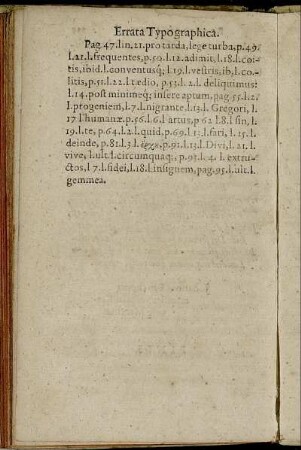 Errata Typographica.
Pag. 47. lin. 21. pro tarda, lege turba, p. 49.
l. 21. l. frequentes, p. 50. l. 12. adimit, l. 18. l. coi-
tis, ibid. l. conventusq; l 19. l. vestris, ib, l. co-
litis, p. 51. l. 22. l tædio, p, 53. l. 2. deliquimus:
l. 14. post minimeq; insere aptum, pag. 55. l. 2.
l. progeniem, l. 7. l. nigrante, l. 13. l. Gregori, l.
17 l. humanæ p. 56. l. 6. l artus, p 62 l. 8 l sin, l.
19. l. te, p. 64. l. 2. l. quid, p. 69. l. 11. l. fari, l. 25. l.
deinde, p. 81. l. 3. l. ἔργα, p. 91. l. 13. l. Divi, l. 21. l.
vive, l. ult. l. circumquaq;, p. 93. l. 4. l. extru-
ctos, l 7. l. fidei, l. 18. l insignem, pag. 95. l. ult. l.
gemmea.